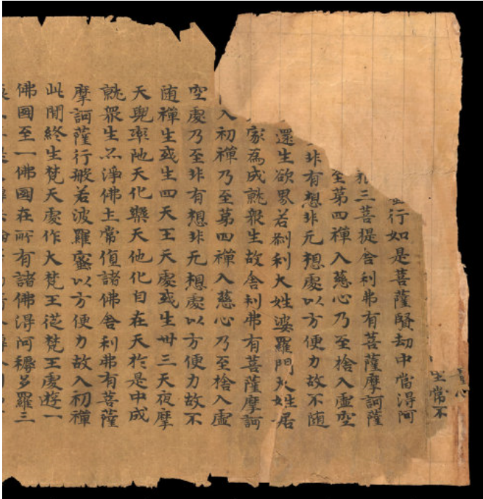 常不
行如是菩薩賢劫中當得阿
三菩提舍利弗有菩薩摩訶薩
至第四禪入慈心乃至捨入虛空
非有想非无想處以方便力故不随
還生欲界若刹利大姓婆羅門大姓居
家為成就衆生故舍利弗有菩薩摩訶
入初禪乃至第四禪入慈心乃至捨入虛
空處乃至非有想非无想處以方便力故不
随禪生或生四天王天處或生卅三天夜摩
天兜率陁天化樂天他化自在天於是中成
就衆生亦淨佛土常值諸佛舍利弗有菩薩
摩訶薩行般若波羅蜜以方便力故入初禪
此間終生梵天處作大梵王從梵王處遊一
佛國至一佛國在所有諸佛得阿耨多羅三